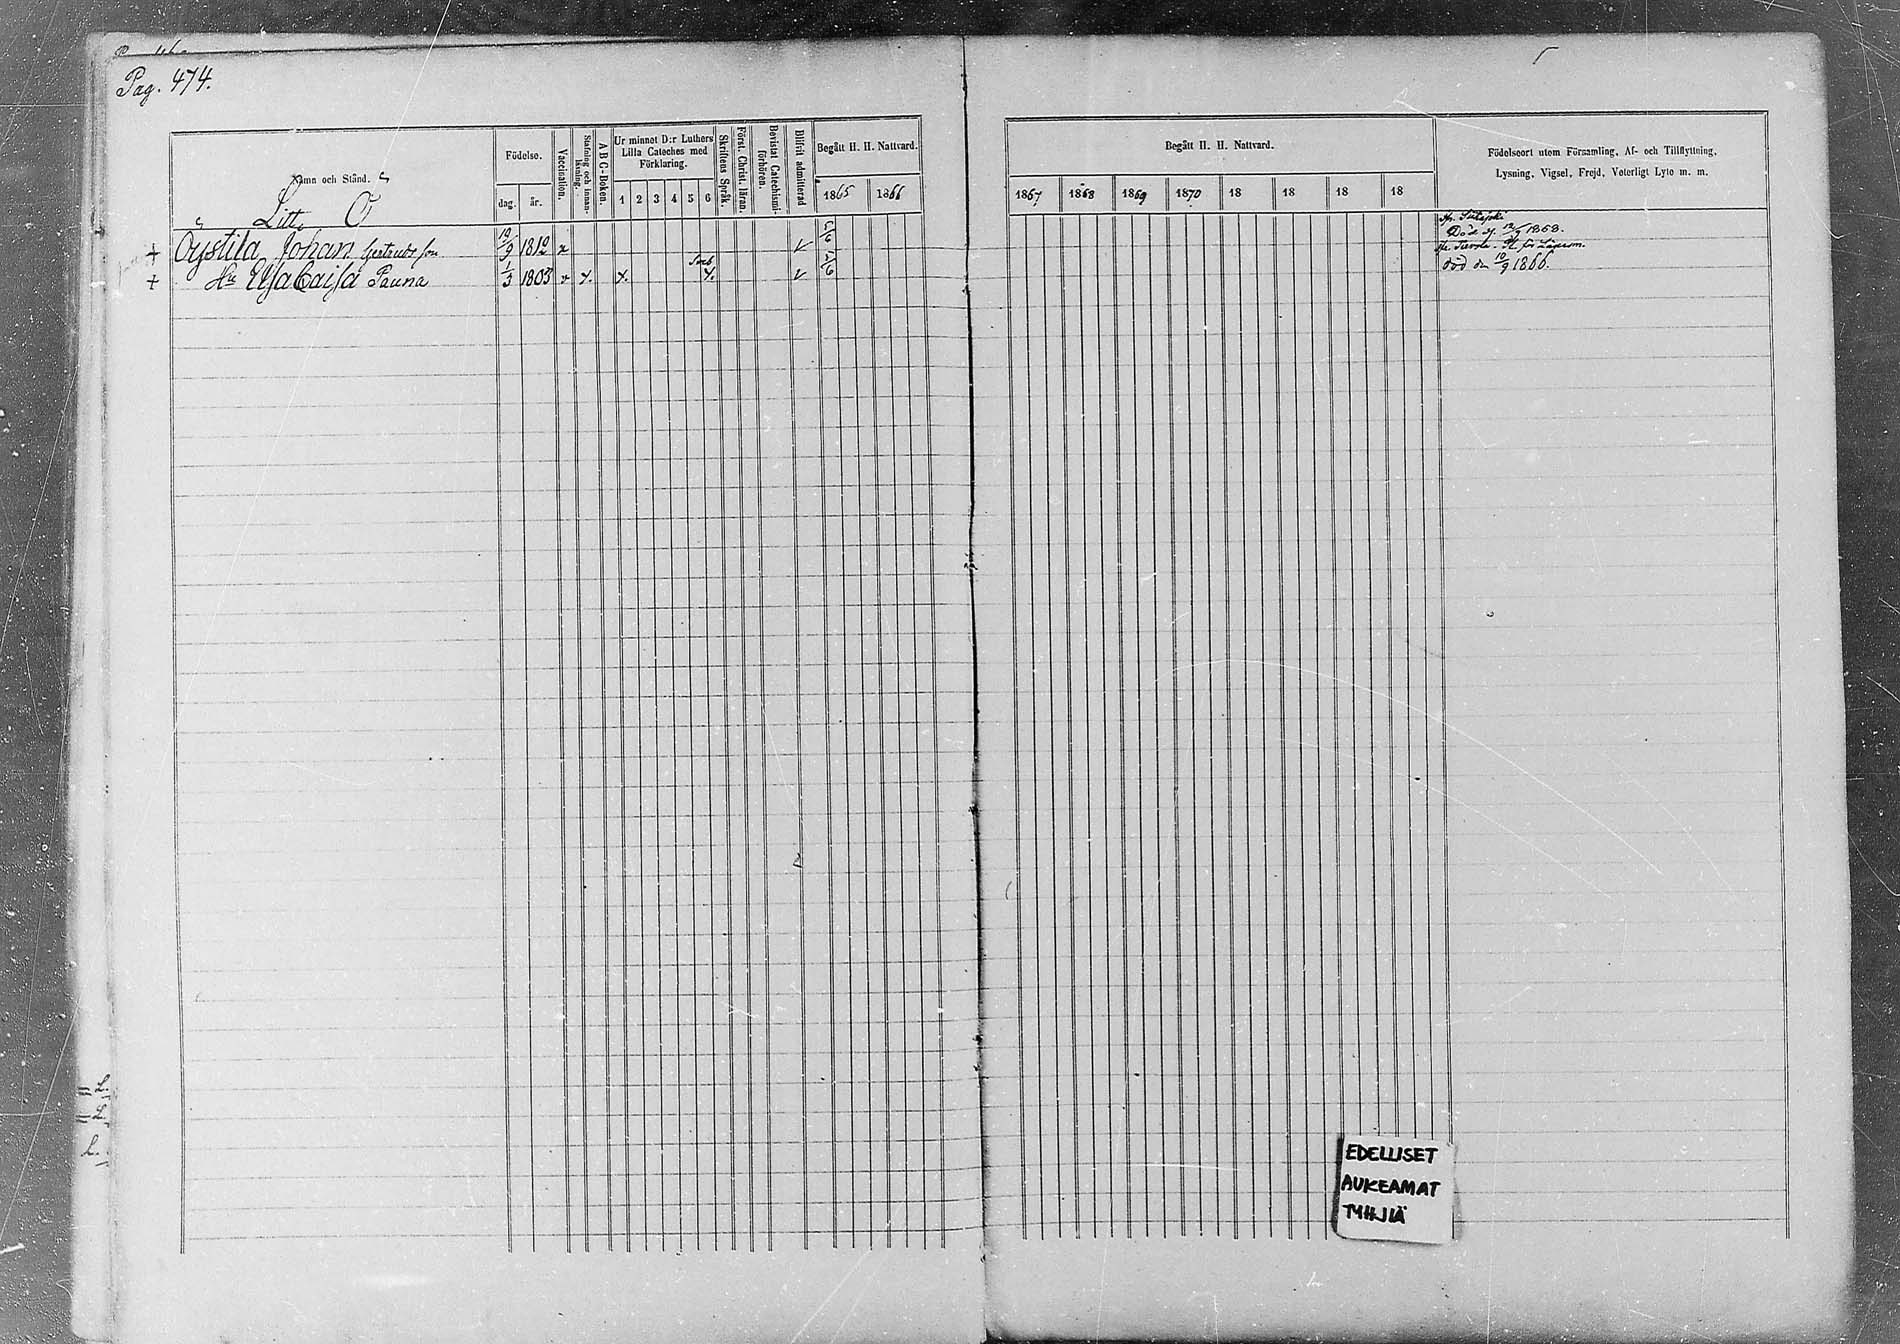 Pag. 474.
Namn och Stånd.
Födelse.
dag. år.
Vaccination.
Stafning och innan-läsning.
A B C-Boken.
Ur minnet D:r Luthers
Lilla Cateches med
Förklaring.
1 2 3 4 5 6
Skriftens Språk.
Först. Christ. läran.
Bevistat Catechismi-
förhören.
Blifvit admitterad
Begått H. H. Nattvard.
1865 1866
Litt. O
+ Oystila Johan 19/9 1812 5/6
+ Hu Elsa Caisa Pauna 1/3 1803 5/6
Begått H. H. Nattvard.
1867 1868 1869 1870 18 18 18 18
Födelseort utom Församling, Af- och Tillflyttning,
Lysning, Vigsel, Frejd, Veterligt Lyte m. m.
Död d. 12/9 1868.
död den 10/9 1866.
EDELLISET
AUKEAMAT
TYHJIÄ